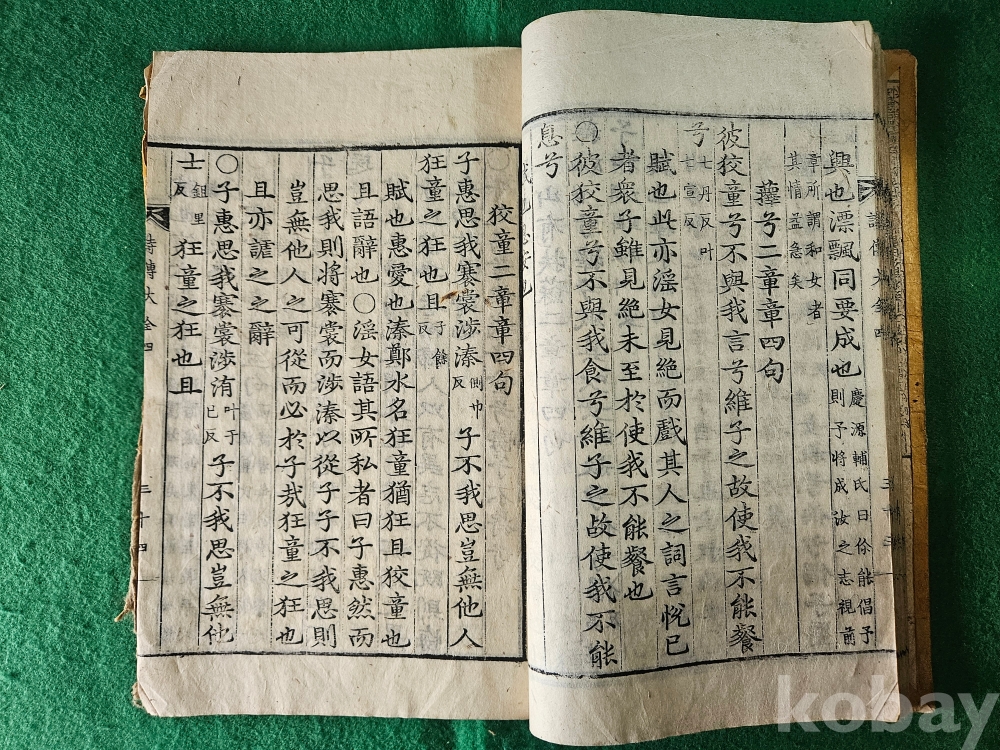 興也漂飄同要成也慶源輔氏曰俆能倡予則予將成汝之志視前
章所謂和女者其情益急矣
蘀兮二章章四句
彼狡童兮不與我言兮維子之故使我不能餐
兮七丹反叶七宣反
賦也此亦淫女見絕而戲其人之詞言悅已
者衆子雖見絕未至於使我不能餐也
○彼狡童兮不與我食兮維子之故使我不能
息兮
狡童二章章四句
子惠思我褰裳涉溱側巾反子不我思豈無他人
狂童之狂也且子餘反
賦也惠愛也溱鄭水名狂童猶狂且狡童也
且語辭也○淫女語其所私者曰子惠然而
思我則將褰裳而涉溱以從子子不我思則
豈無他人之可從而必於子哉狂童之狂也
且亦謔之之辭
○子惠思我褰裳涉洧叶于已反子不我思豈無他
士鉏里反狂童之狂也且
詩傳大全四
三十四
kobay